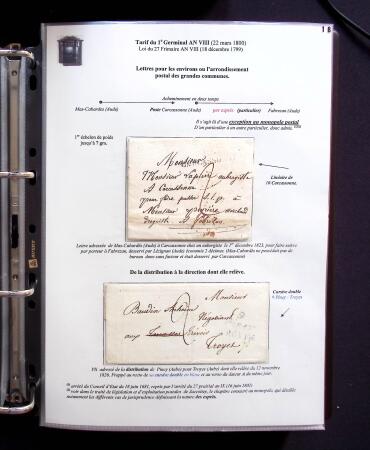 18
Tarif du 1er Germinal AN VIII (22 mars 1800)
Loi du 27 Frimaire AN VIII (18 décembre 1799)
Lettres pour les environs ou l'arrondissement
postal des grandes communes.
Acheminement en deux temps
Mas-Cabardès (Aude) Poste Carcassonne (Aude) par exprès (particulier) Fabrezan (Aude)
Il s'agit là d'une exception au monopole postal
D'un particulier à un autre particulier, donc admis.
1er échelon de poids
jusqu'à 7 grs.
Monsieur
Monsieur aubergiste
A Carcassonne
pour faire passer
Monsieur
Linéaire de
10 Carcassonne.
Lettre adressée de Mas-Cabardès (Aude) à Carcassonne chez un aubergiste le 1er décembre 1823, pour faire suivre
par porteur à Fabrezan, desservi par Lézignan (Aude) économie 2 décimes. (Mas-Cabardès ne possédait pas de
bureau donc sans facteur il était desservi par Carcassonne)
De la distribution à la direction dont elle relève.
Monsieur
Baudin
Négociant
aux
Troyes
Cursive double
9 Piney - Troyes
PD. adressé de la distribution de Piney (Aube) pour Troyes (Aube) dont elle relève du 12 novembre
1826. Frappé au recto de sa cursive double en bleue et au verso du dateur A du même jour.
arrêté du Conseil d'Etat du 18 juin 1681, repris par l'arrêté du 27 prairial an IX (16 juin 1801)
voir dans le traité de législation et d'exploitation postales de Jaccottey, le chapitre consacré au monopole, qui détaille
notamment les différents cas de jurisprudence définissant la nature des exprès.